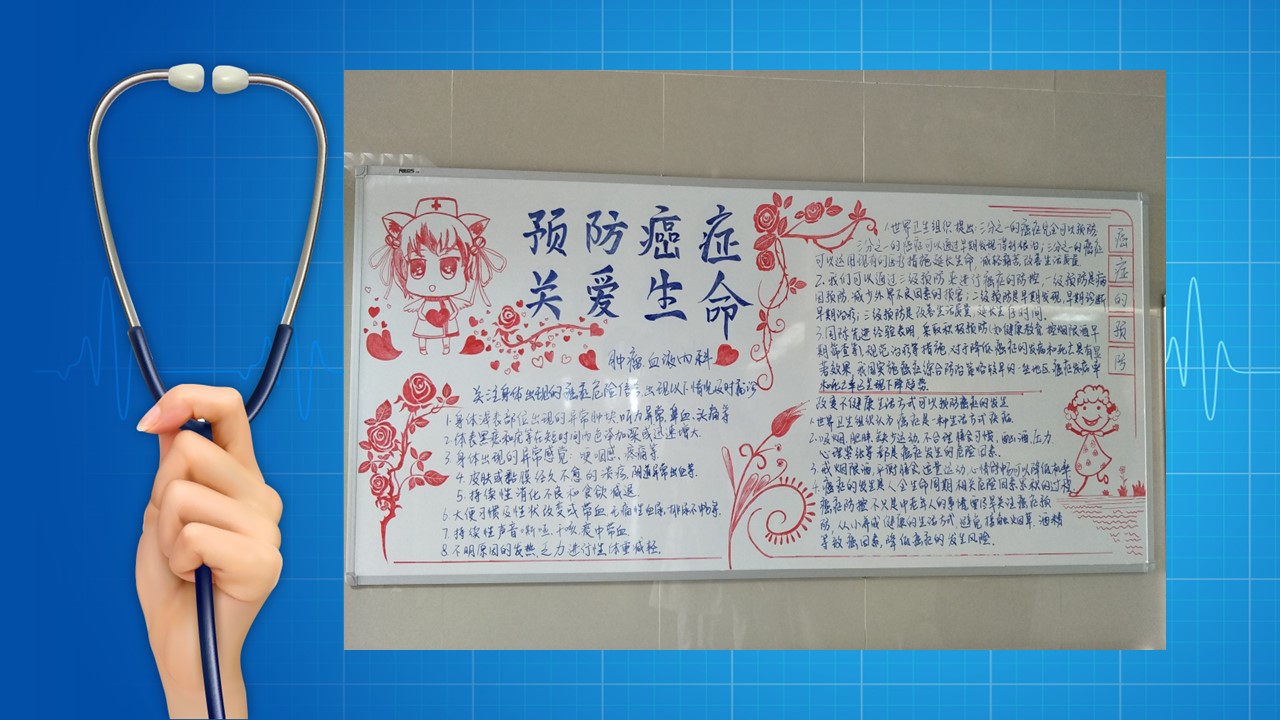 预防癌症
关爱生命
肿瘤血液内科
关注身体出现的癌症危险信号,出现以下情况及时就诊
1.身体浅表部位出现的异常肿块,听力异常,鼻血,头痛等
2.体表黑痣和疣等在短时间内色泽加深或迅速增大.
3.身体出现的异常感觉 哽咽感、疼痛等
4.皮肤或黏膜经久不愈的溃疡,阴道异常出血等.
5.持续性消化不良和食欲减退
6.大便习惯及性状改变或带血,无痛性血尿,排尿不畅等.
7.持续性声音嘶哑,干咳,痰中带血.
8.不明原因的发热,乏力,进行性体重减轻.
癌症的预防
1.世界卫生组织提出:三分之一的癌症完全可以预防
三分之一的癌症可以通过早期发现得到根治;三分之一的癌症
可以运用现有的医疗措施延长生命,减轻痛苦,改善生活质量
2.我们可以通过三级预防来进行癌症的防控,一级预防是病
因预防,减少外界不良因素的损害;二级预防是早期发现,早期诊断
早期治疗;三级预防是改善生活质量,延长生存时间.
3.国际先进经验表明,采取积极预防(如健康教育,控烟限酒,早
期筛查),规范治疗等措施,对于降低癌症的发病和死亡具有显
著效果,我国实施癌症综合防治策略较早的一些地区,癌症发病率
和死亡率已呈现下降趋势.
改变不健康生活方式可以预防癌症的发生
1.世界卫生组织认为癌症是一种生活方式疾病.
2.吸烟,肥胖,缺少运动,不合理膳食习惯,酗酒,压力
心理紧张等都是癌症发生的危险因素.
3.戒烟限酒,平衡膳食,适量运动,心情舒畅可以降低
4.癌症的发生是人全生命周期相关危险因素累积的过程
癌症防控不只是中老年人的事情,要尽早关注癌症预
防,从小养成健康的生活方式,避免接触烟草,酒精
等致癌因素,降低癌症的发生风险.